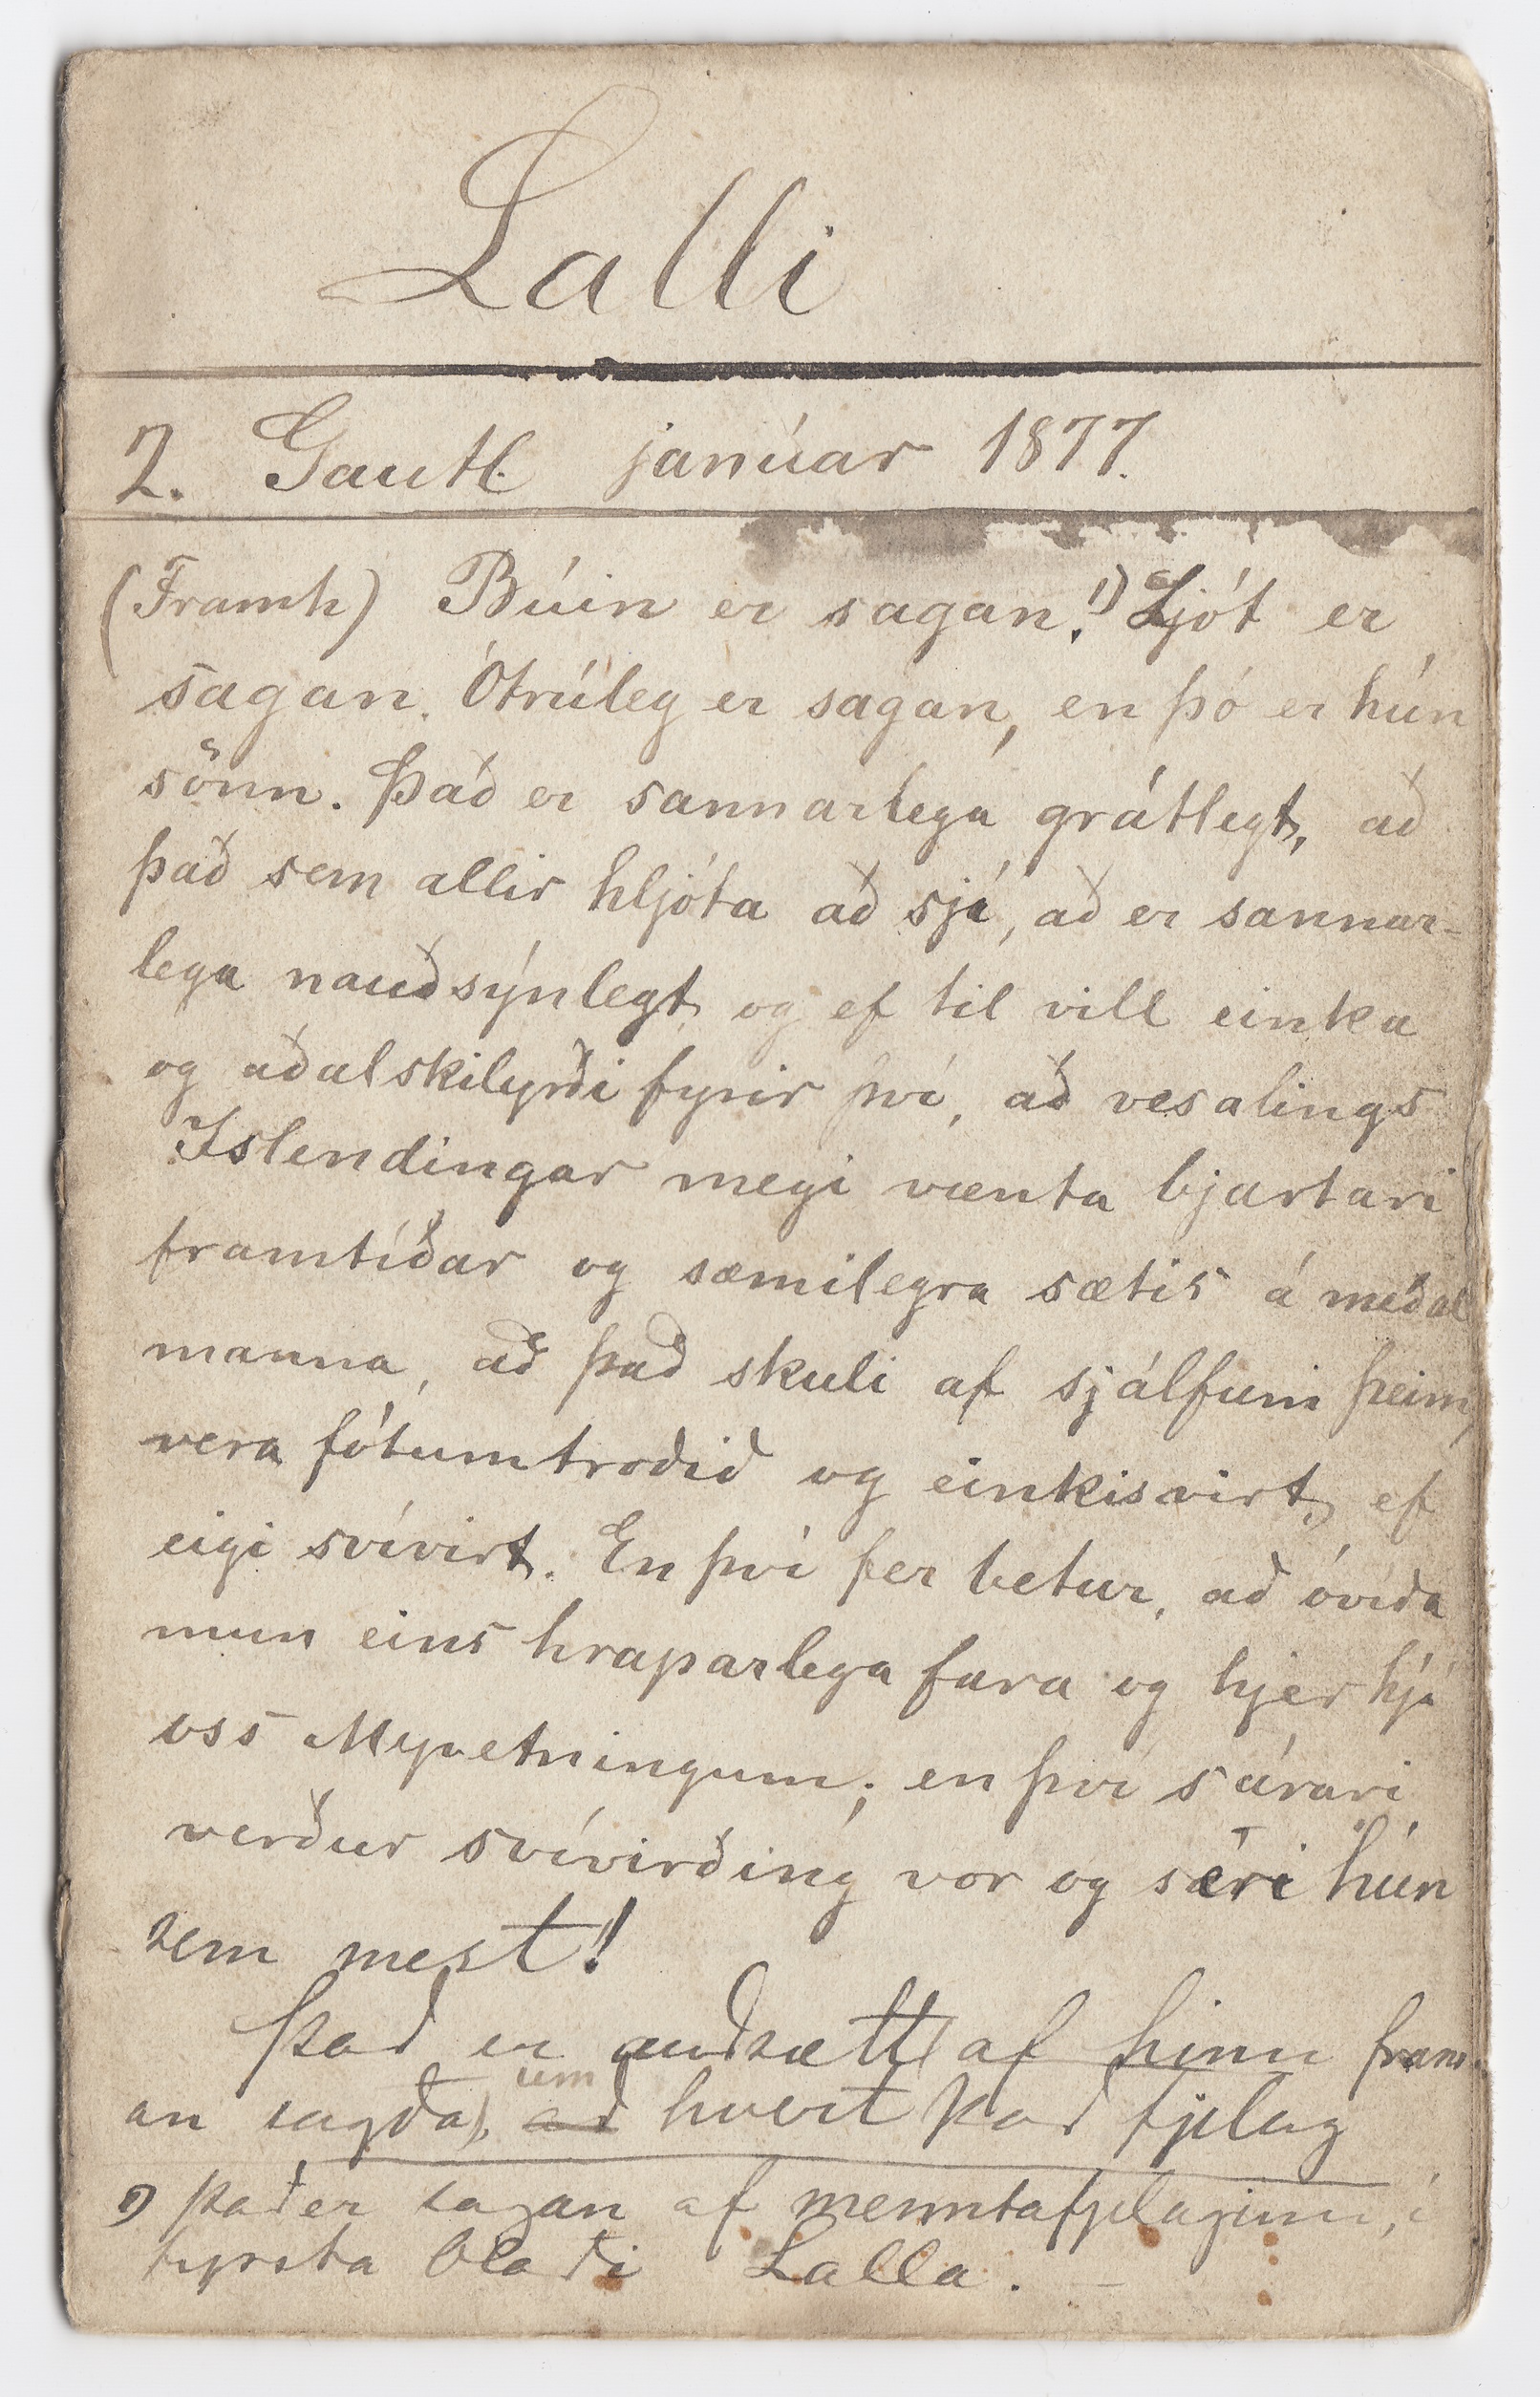 Lalli
2. Gautl. janúar 1877.
(Framh) Búin er sagan!¹) Ljót er
sagan. Ótrúleg er sagan, en þó er hún
sönn. Það er sannarlega grátlegt, að
það sem allir hljóta að sjá, að er sannar-
lega nauðsýnlegt og ef til vill einka
og aðalskilyrði fyrir því, að vesalings
Íslendingar megi vænta bjartari
framtíðar og sæmilegra sætis á meðal
manna, að það skuli af sjálfum þeim,
vera fótumtroðið og einkisvirt, ef
eigi svívirt. En því fer betur, að óvíða
mun eins hraparlega fara og hjer hjá
oss Mývetningum; en því sárari
verður svívirðing vor og særi hún
sem mest!
Það er auðsætt (af hinu fram-
an sagða), að um hvert það fjelag
¹) Það er sagan af menntafjelaginu, í
fyrsta blaði Lalla. –